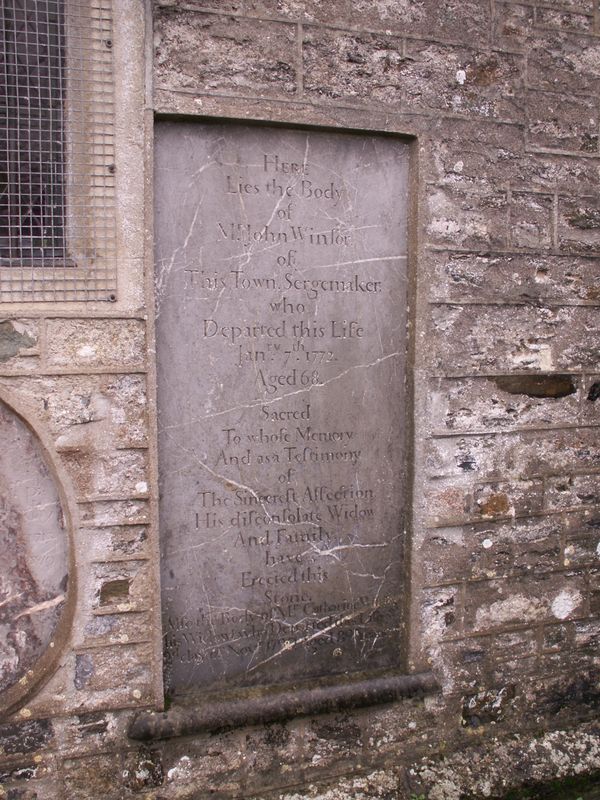 HERE
Lies the Body
of
Mr. John Winsor
of
This Town, Sergemaker,
who
Departed this Life
Janry. 7th. 1772.
Aged 68.
Sacred
To whoſe Memory
And as a Teſtimony
of
The Sincereſt Affection
His diſconſolate Widow
And Family
have
Erected this
Stone.
Alſo the Body of Mrs Catherine
his Widow who Departed this Life
Novr